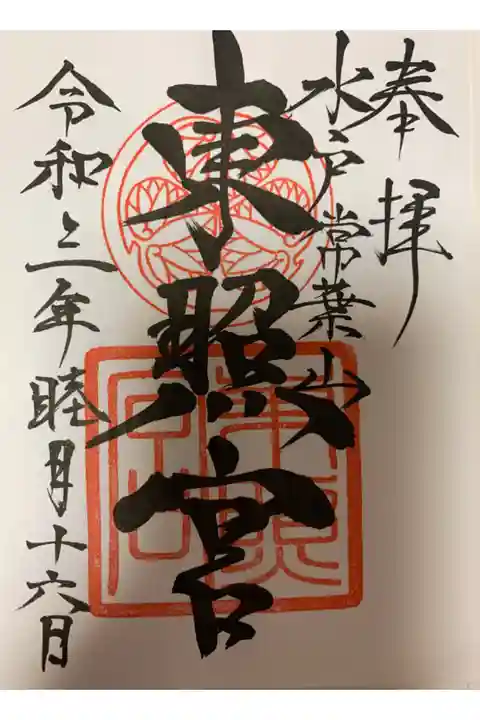 奉拝
水戸常葉山
東照宮
令和三年睦月十六日